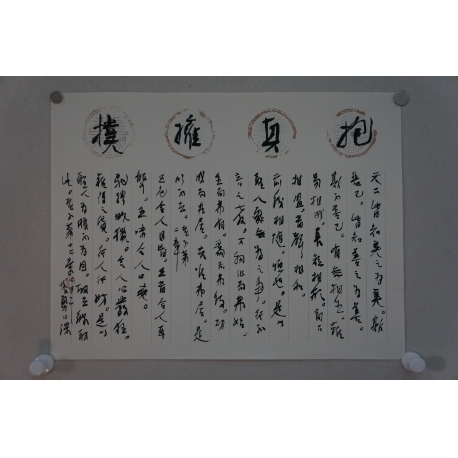 抱真擁撲
天下皆知美之為美。斯
惡已。皆知善之為善。
斯不善已。有無相生。難
易相成。長短相形。高下
相盈。音聲相和。
前後相隨。恒也。是以
聖人處無為之事。行不
言之教。万物作而弗始。
生而弗有。為而弗恃。功
成而弗居。夫唯弗居。是
以不去。老子第
二章
五色令人目盲。五音令人耳
聾。五味令人口爽。
馳騁畋獵。令人心發狂。
難得之貨。令人行妨。是以
聖人為腹不為目。故去彼取
此。老子第十二章